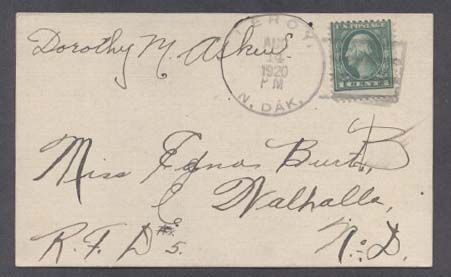 Dorothy M. Askew
LEROY,
AUG
14
1920
P M
N. DAK.
1 CENT 1
Miss Ednas Burt,
Walhalla,
R. F. D. #5. N. D.